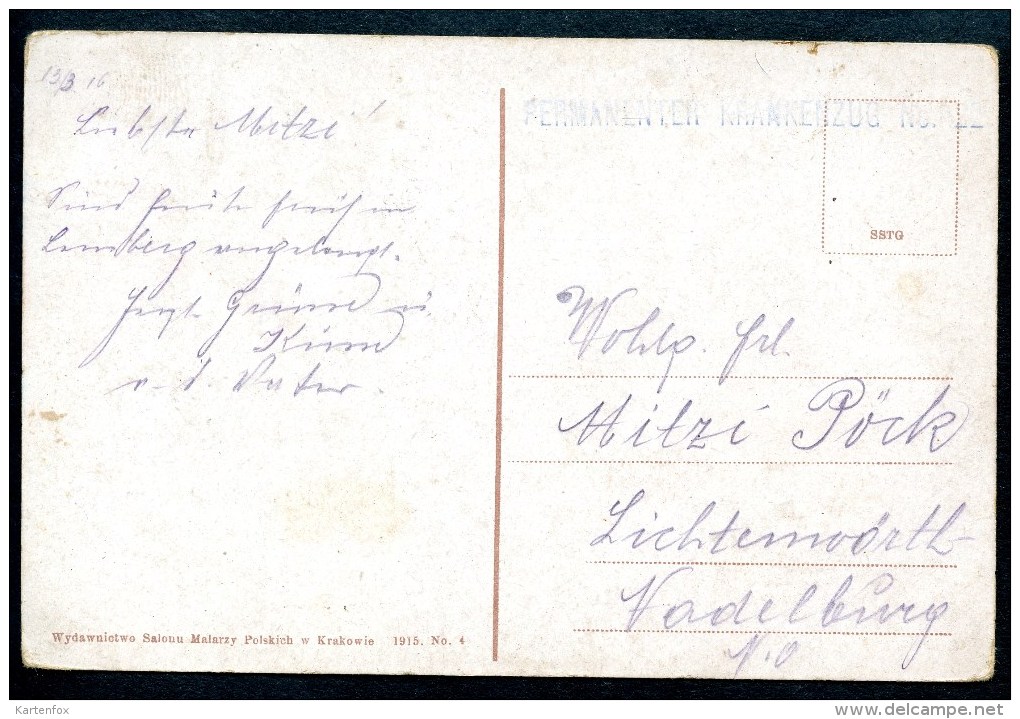 13/3 16
Liebste Mitzi!
Sind heute früh in
Lemberg angelangt.
Grüsse u.
Küsse
v. d. Vater.
PERMANENTER KRANKENZUG No.
SSTG
Wohlg. Frl.
Mitzi Pöck
Lichtenwörth-
Nadelburg
N.Ö
Wydawnictwo Salonu Malarzy Polskich w Krakowie 1915. No. 4
Kartenfox
delcampe.net